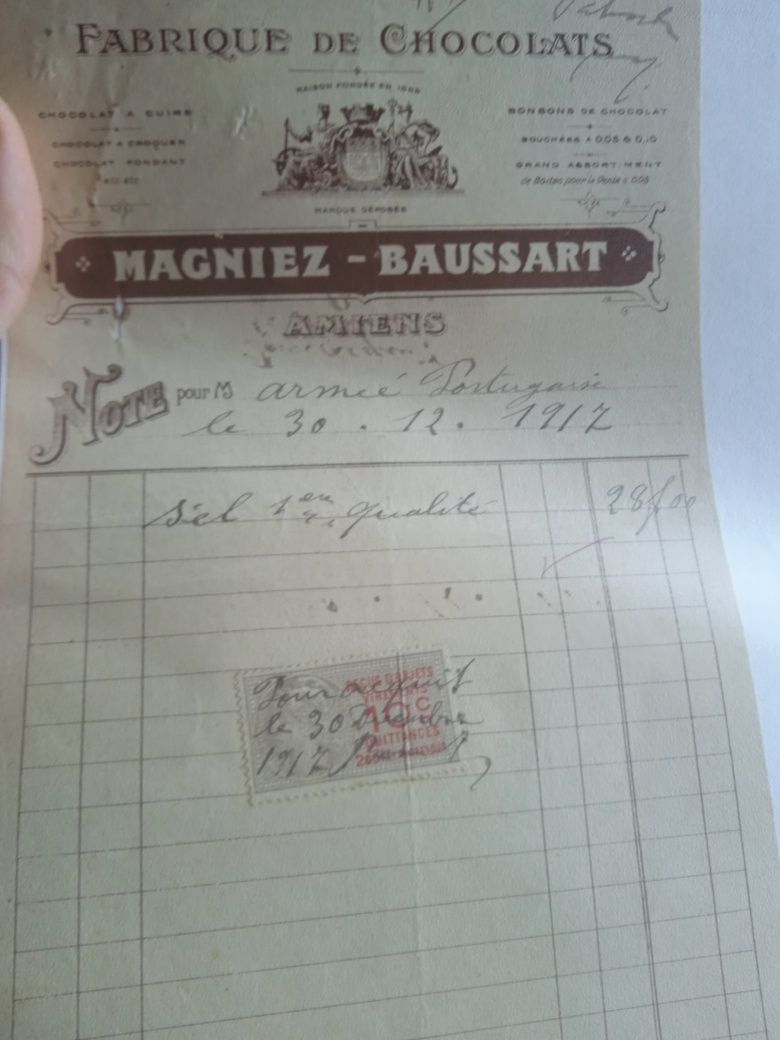 FABRIQUE DE CHOCOLATS
MAISON FONDÉE EN
CHOCOLAT A CUIRE
CHOCOLAT A CROQUER
CHOCOLAT FONDANT
BONBONS DE CHOCOLAT
BOUCHÉES A 0,05 & 0,10
GRAND ASSORTIMENT
de Boîtes pour la Vente à 0,05
MARQUE DÉPOSÉE
MAGNIEZ - BAUSSART
AMIENS
NOTE pour M armée Portugaise
le 30 . 12 . 1917
Sel 1ere qualité 28f00
Pour acquit
le 30 Décembre
1917
REÇUS D'OBJETS
10c
QUITTANCES